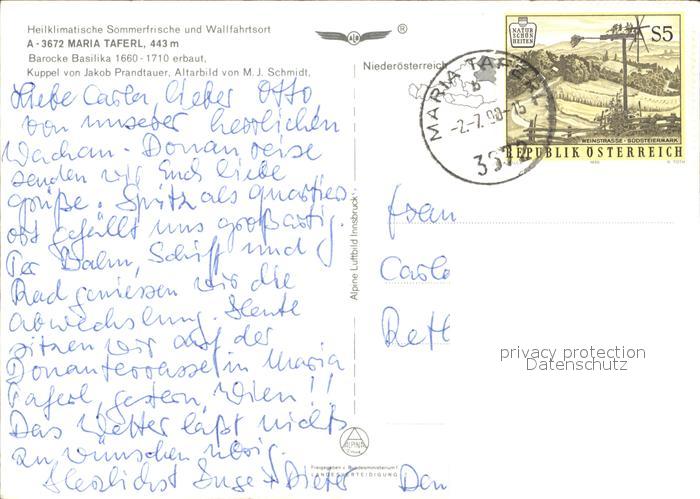 Heilklimatische Sommerfrische und Wallfahrtsort
A - 3672 MARIA TAFERL, 443 m
Barocke Basilika 1660 - 1710 erbaut,
Kuppel von Jakob Prandtauer, Altarbild von M. J. Schmidt,
Niederösterreich
®
Liebe Carla, lieber Otto
von unserer herrlichen
Wachau - Donaureise
senden wir Euch liebe
Grüße. Spitz als Quartier
ort gefällt uns großartig.
Per Bahn, Schiff und
Rad geniessen wir die
Abwechslung. Heute
sitzen wir auf der
Donauterrasse in Maria
Taferl, gestern Wien!!
Das Wetter läßt nichts
zu wünschen übrig.
Herzlichst Inge + Dieter
Alpine Luftbild Innsbruck
ALPINA
Freigegeben v. Bundesministerium f.
LANDESVERTEIDIGUNG
MARIA TAFERL
-2.-7.90-15
b
NATUR
SCHÖN
HEITEN
S5
WEINSTRASSE - SÜDSTEIERMARK
REPUBLIK ÖSTERREICH
Frau
Carla
privacy protection
Datenschutz